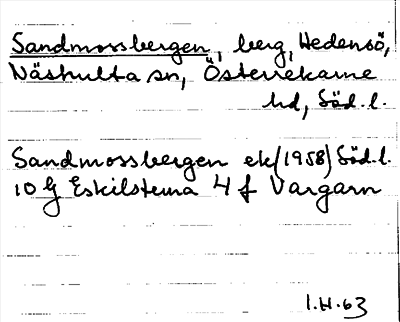 Sandmossbergen, berg, Hedensö,
Näshulta sn, Österrekarne
hd, Söd.l.
Sandmossbergen ek (1958) Söd.l.
10 G Eskilstuna 4 f Vargarn
1.H.63